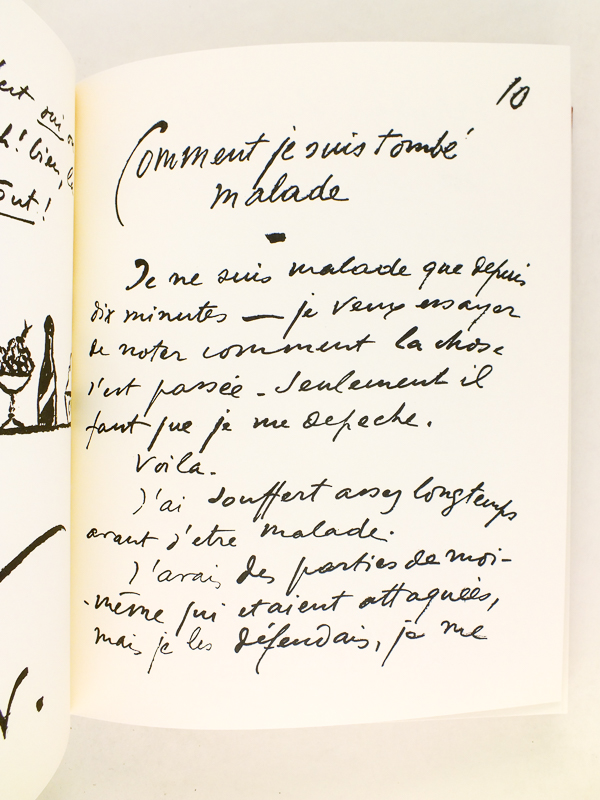 oui
h! bien,
Tout!
10
Comment je suis tombé
malade
Je ne suis malade que depuis
dix minutes — je veux essayer
de noter comment la chose
s'est passée - Seulement il
faut que je me depeche.
Voila.
J'ai souffert assez longtemps
avant d'etre malade.
J'avais des parties de moi-
-même qui etaient attaquées,
mais je les défendais, je me